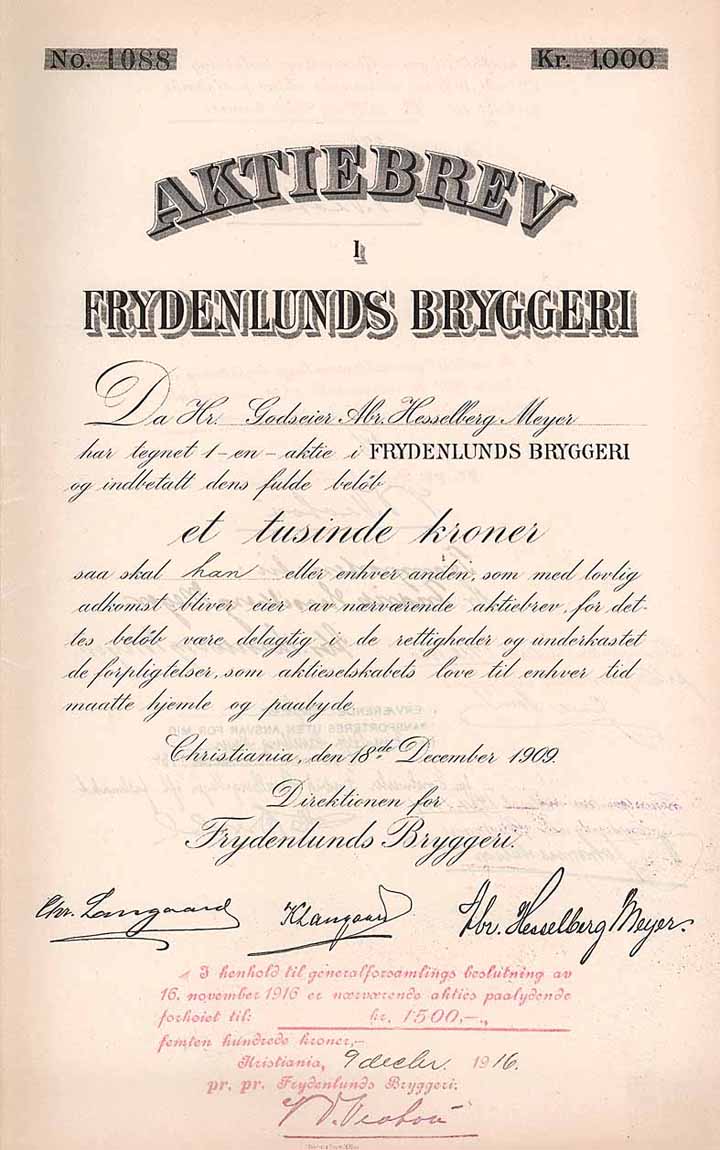 No. 1088
Kr. 1,000
AKTIEBREV
I
FRYDENLUNDS BRYGGERI
Da Hr. Godseier Abr. Hesselberg Meyer
har tegnet 1-en- aktie i FRYDENLUNDS BRYGGERI
og indbetalt dens fulde beløb
et tusinde kroner
saa skal han eller enhver anden, som med lovlig
adkomst bliver eier av nærværende aktiebrev, for det-
tes beløb være delagtig i de rettigheder og underkastet
de forpligtelser, som aktieselskabets love til enhver tid
maatte hjemle og paabyde.
Christiania, den 18de December 1909.
Direktionen for
Frydenlunds Bryggeri.
Chr. Langaard
K Langaard
Abr. Hesselberg Meyer.
I henhold til generalforsamlings beslutning av
16. november 1916 er nærværende akties paalydende
forhøiet til: kr. 1500,-,,
femten hundrede kroner,-
Kristiania, 9 decbr. 1916.
pr. pr. Frydenlunds Bryggeri: